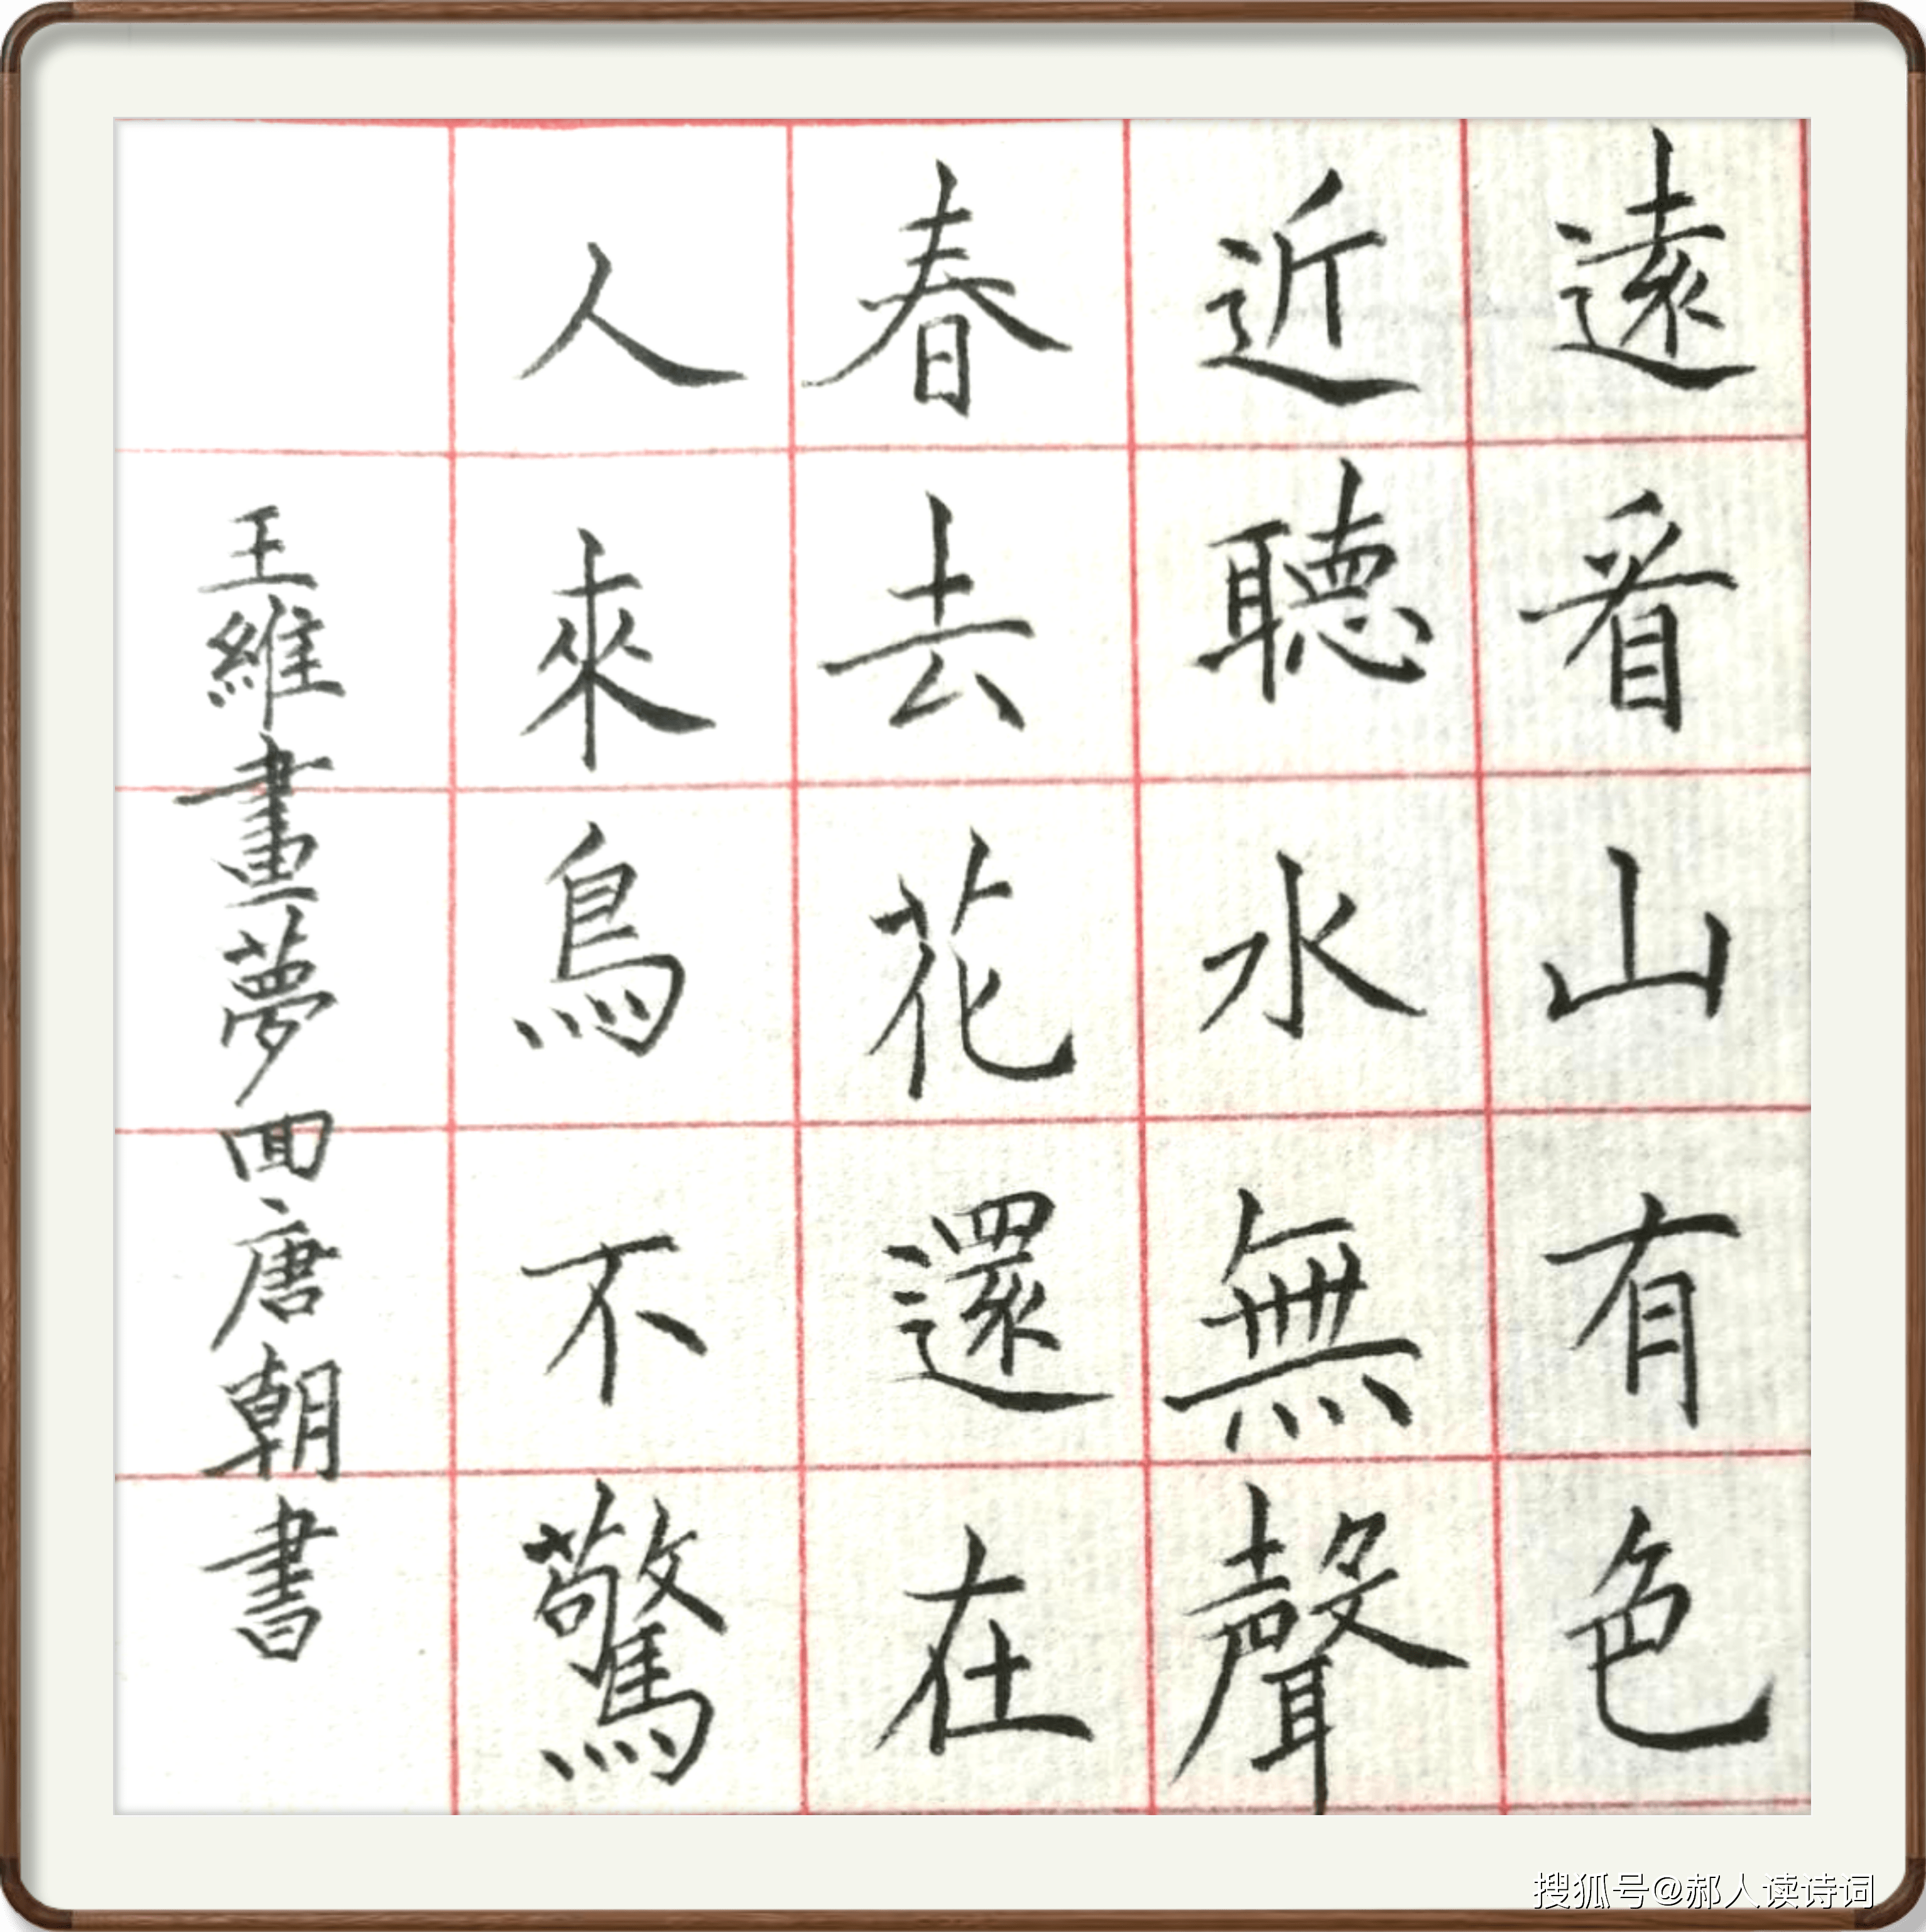 遠看山有色
近聽水無聲
春去花還在
人來鳥不驚
王維畫夢回唐朝書
搜狐号@郝人读诗词